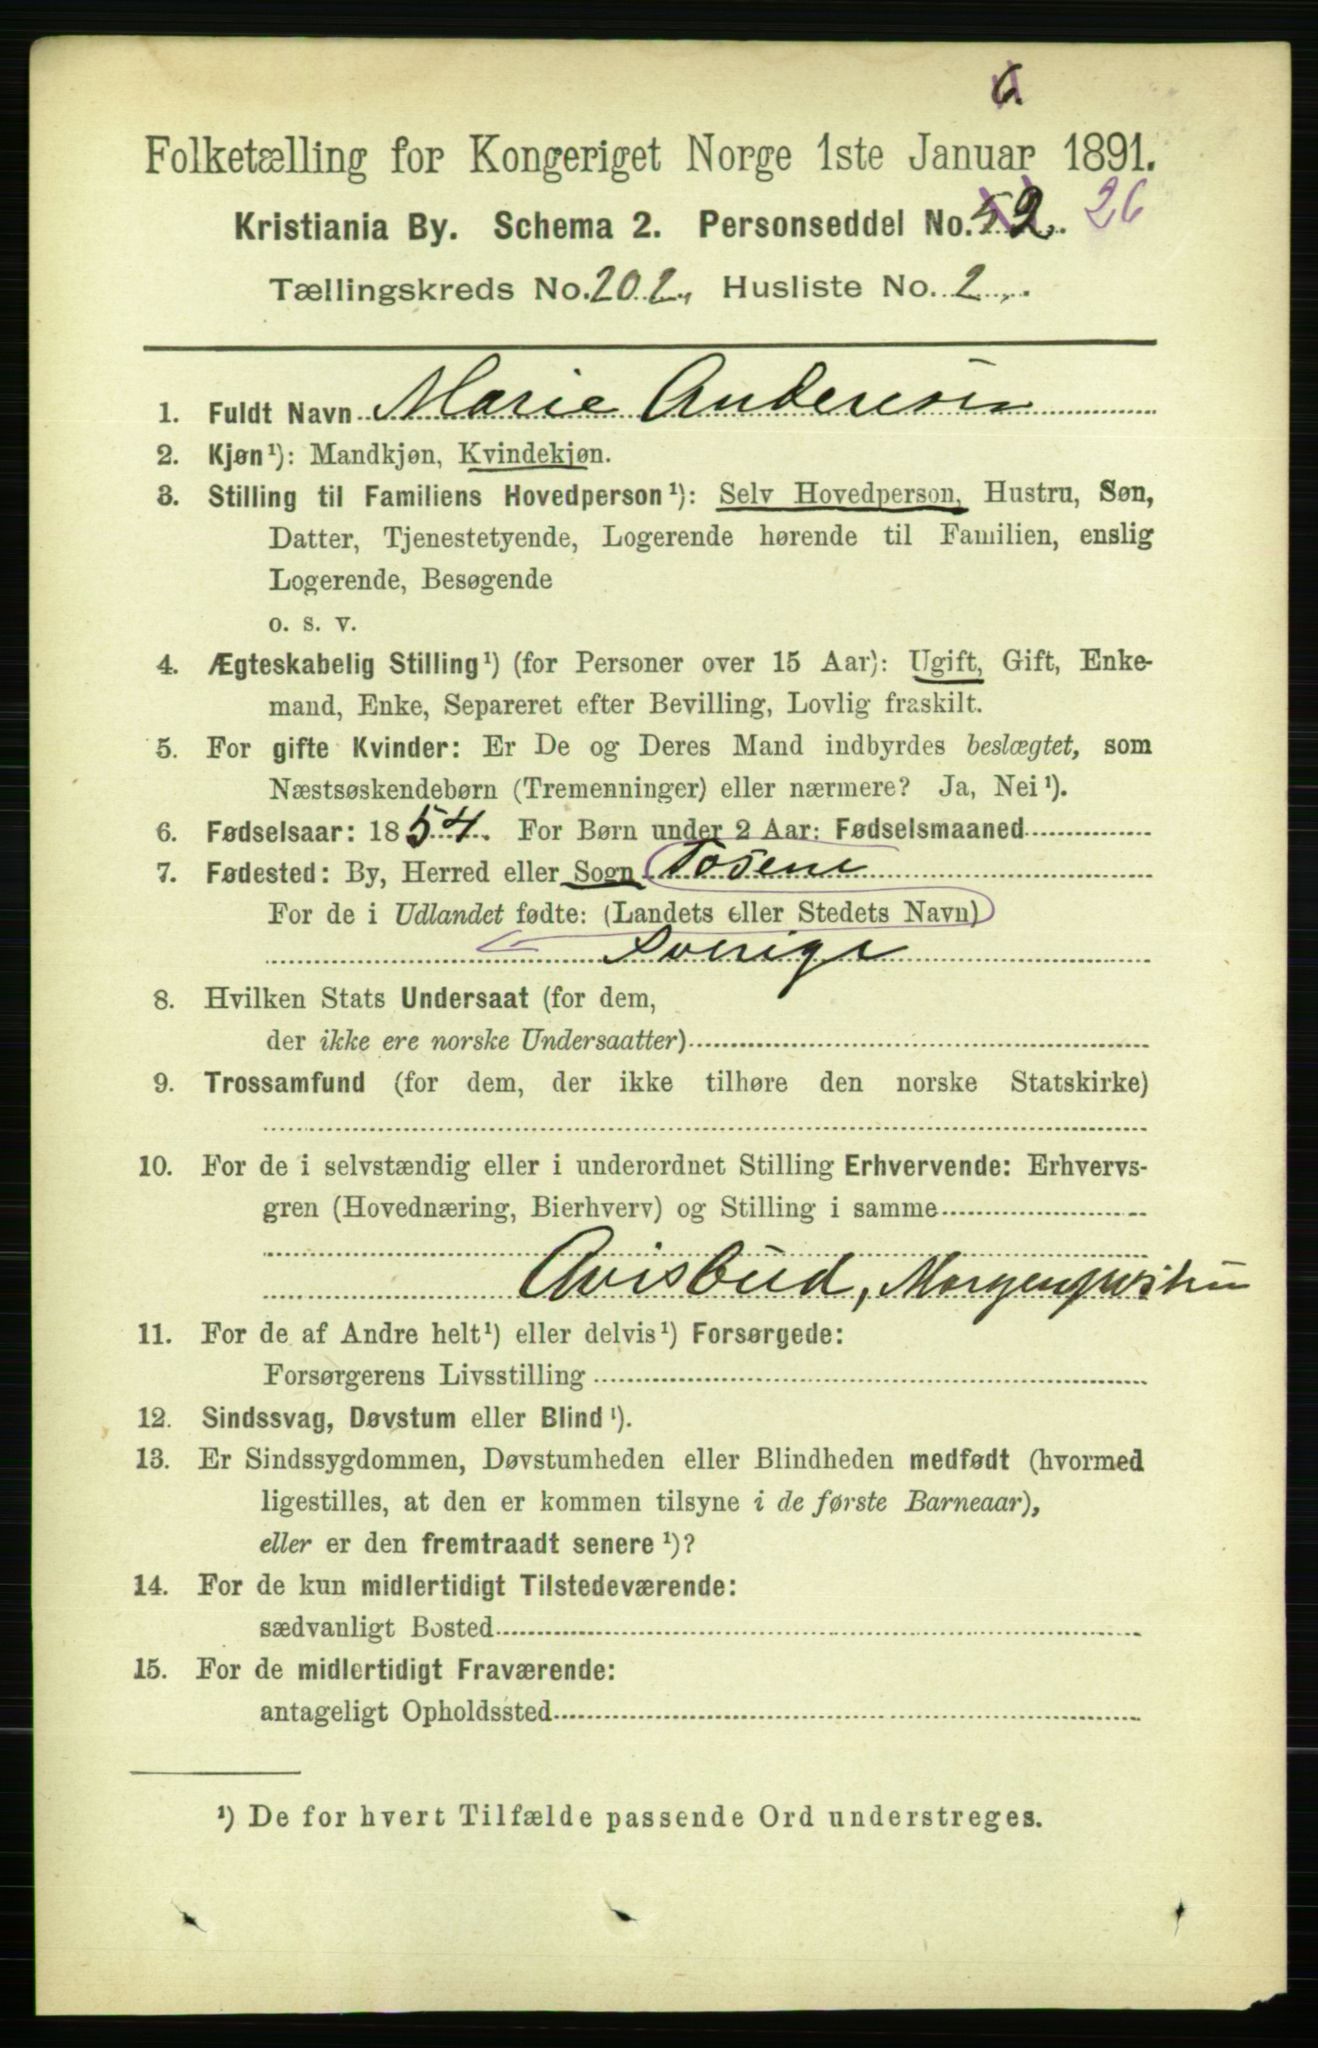 6
Folketælling for Kongeriget Norge 1ste Januar 1891.
Kristiania By. Schema 2. Personseddel No. 52. 26
Tællingskreds No. 202, Husliste No. 2.
1. Fuldt Navn Marie Andersen
2. Kjøn¹): Mandkjøn, Kvindekjøn.
3. Stilling til Familiens Hovedperson¹): Selv Hovedperson, Hustru, Søn,
Datter, Tjenestetyende, Logerende hørende til Familien, enslig
Logerende, Besøgende
o. s. v.
4. Ægteskabelig Stilling¹) (for Personer over 15 Aar): Ugift, Gift, Enke-
mand, Enke, Separeret efter Bevilling, Lovlig fraskilt.
5. For gifte Kvinder: Er De og Deres Mand indbyrdes beslægtet, som
Næstsøskendebørn (Tremenninger) eller nærmere? Ja, Nei¹).
6. Fødselsaar: 1854. For Børn under 2 Aar: Fødselsmaaned
7. Fødested: By, Herred eller Sogn Tosene
For de i Udlandet fødte: (Landets eller Stedets Navn)
Sverige
8. Hvilken Stats Undersaat (for dem,
der ikke ere norske Undersaatter)
9. Trossamfund (for dem, der ikke tilhøre den norske Statskirke)
10. For de i selvstændig eller i underordnet Stilling Erhvervende: Erhvervs-
gren (Hovednæring, Bierhverv) og Stilling i samme
Avisbud, Morgenposten
11. For de af Andre helt¹) eller delvis¹) Forsørgede:
Forsørgerens Livsstilling
12. Sindssvag, Døvstum eller Blind¹).
13. Er Sindssygdommen, Døvstumheden eller Blindheden medfødt (hvormed
ligestilles, at den er kommen tilsyne i de første Barneaar),
eller er den fremtraadt senere¹)?
14. For de kun midlertidigt Tilstedeværende:
sædvanligt Bosted
15. For de midlertidigt Fraværende:
antageligt Opholdssted
¹) De for hvert Tilfælde passende Ord understreges.